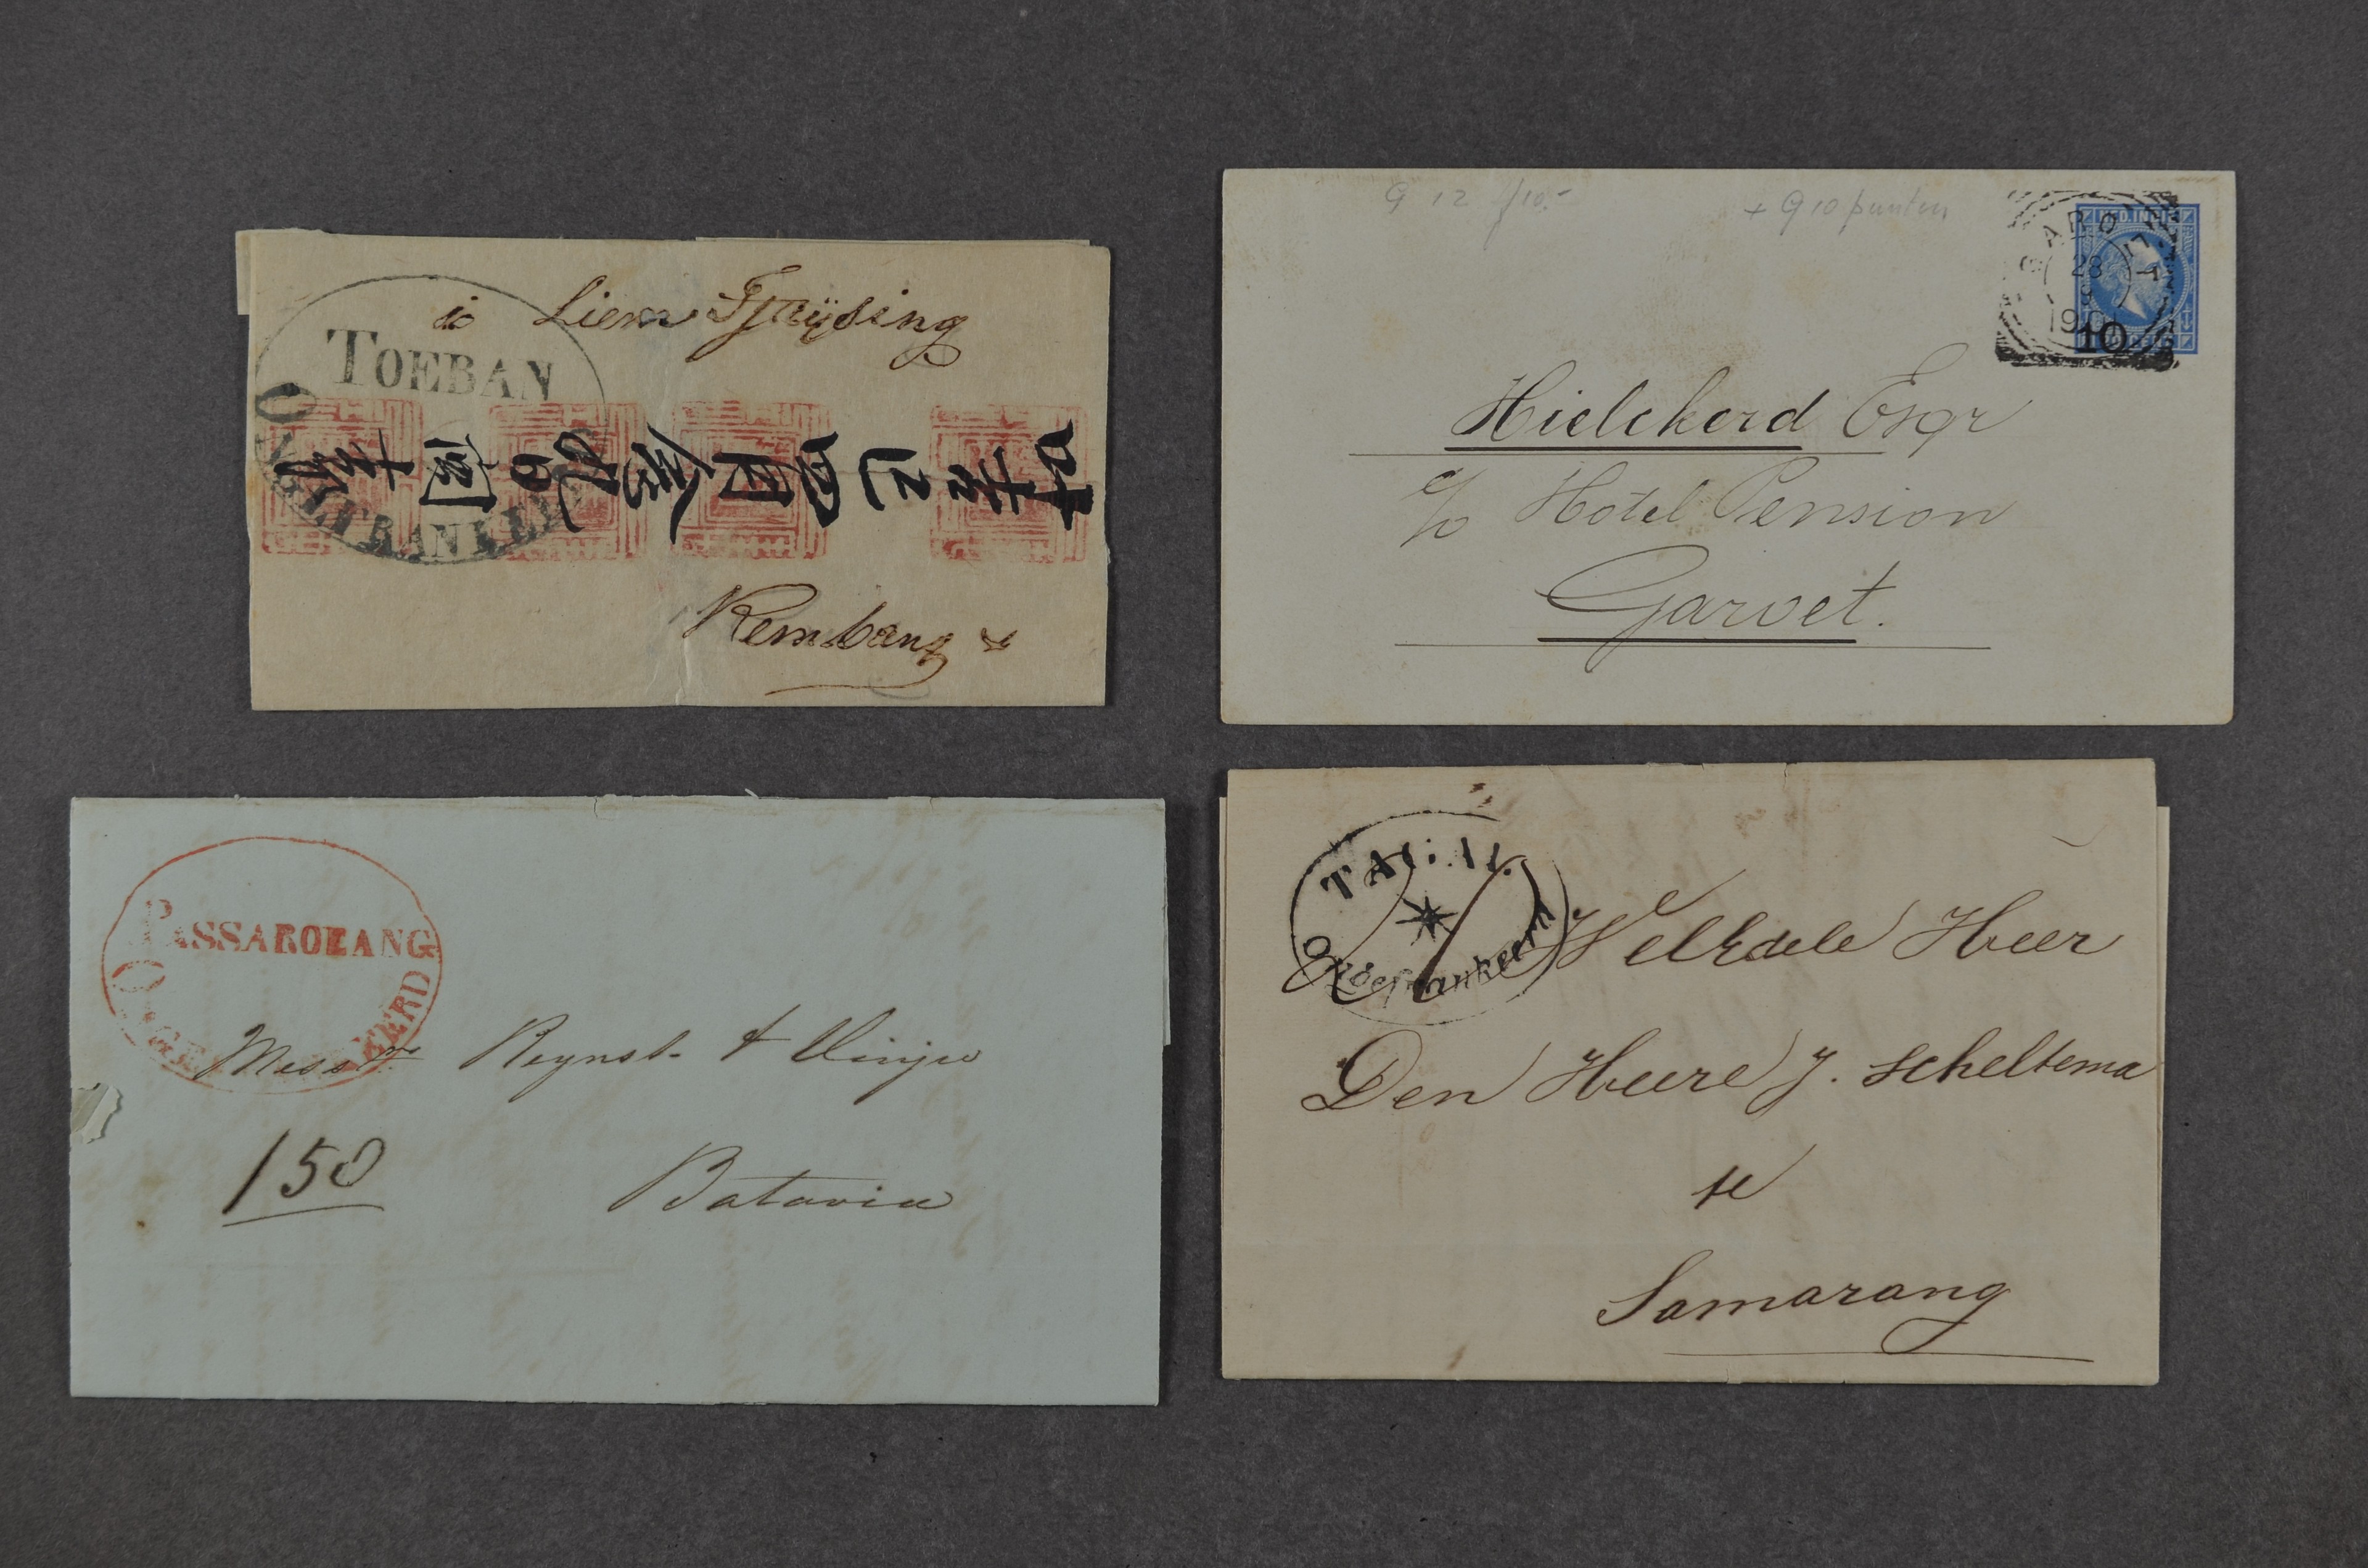 TOEBAN
ONGEFRANKEERD
Liem Tjaijsing
Rembang
G 12 f10.-
+ G 10 punten
GAROET
28
190
NED. INDIE
10
Hielckerd Esqr
c/o Hotel Pension
Garoet.
PASSAROEANG
ONGE EERD
Messrs Reynst & Vinju
150
Batavia
TAGAL
Ongefrankeerd
WelEdele Heer
Den Heere J. Scheltema
te
Samarang